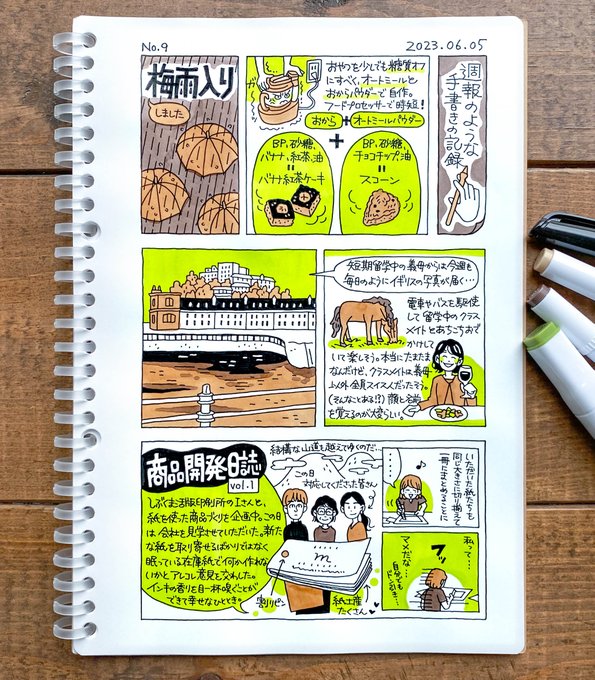 No.9
2023.06.05
梅雨入り
しました
おやつを少しでも糖質オフ
にすべく、オートミールと
おからパウダーで自作。
フードプロセッサーで時短！
おから+オートミールパウダー
+
BP、砂糖、
バナナ、紅茶、油
=
バナナ紅茶ケーキ
BP、砂糖、
チョコチップ、油
=
スコーン
週報のような
手書きの記録
短期留学中の義母からは今週も
毎日のようにイギリスの写真が届く…
電車やバスを駆使
して留学中のクラス
メイトとあちこちおで
かけして
いて楽しそう。本当にたまたま
なんだけど、クラスメイトは義母
以外全員スイス人だったそう。
(そんなことある!?) 顔と名前
を覚えるのが大変らしい。
商品開発日誌
vol.1
しぶや活版印刷所のIさんと、
紙を使った商品づくりを企画中。この日
は、会社を見学させていただいた。新た
な紙を取り寄せるばかりではなく
眠っている在庫紙で何か作れな
いかとアレコレ意見を交わした。
インキの香りを目一杯嗅ぐことが
できて幸せなひととき。
結構な山道を越えてゆくのだ…
この日
対応してくださった皆さん
m
割りピン
紙土産
たくさん
いただいた紙たちも
同じ大きさに切り揃えて
一冊にまとめることに
……
♪
私って…
マメだな…
フッ
自分でも